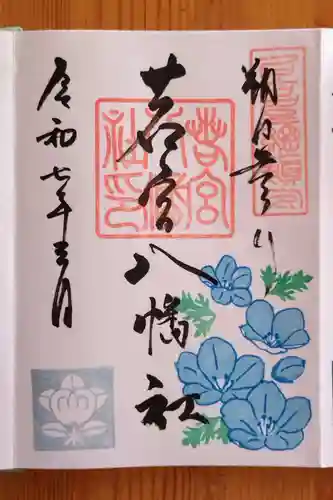 朔日参り
若宮八幡社
令和七年三月
若宮
八幡
社印